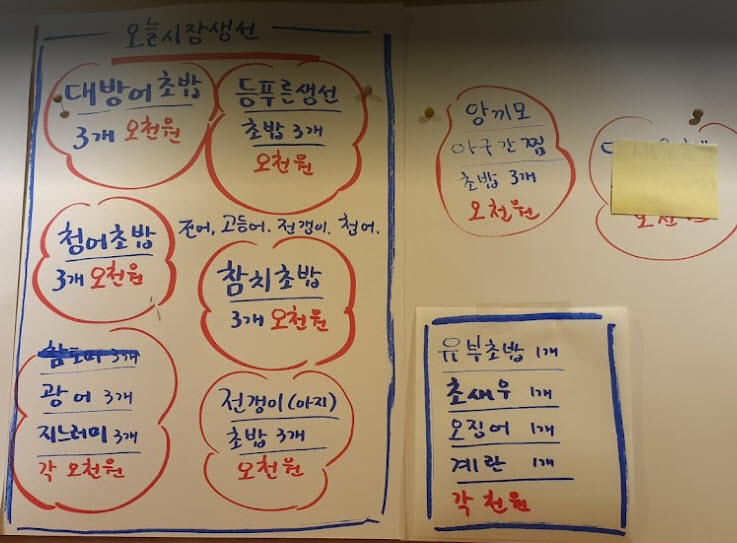 오늘시장생선
대방어초밥
3개 오천원
등푸른생선
초밥 3개
오천원
전어, 고등어, 전갱이, 청어.
청어초밥
3개 오천원
참치초밥
3개 오천원
참도미 3개
광어 3개
지느러미 3개
각 오천원
전갱이(아지)
초밥 3개
오천원
앙끼모
아구간찜
초밥 3개
오천원
유부초밥 1개
초새우 1개
오징어 1개
계란 1개
각 천원